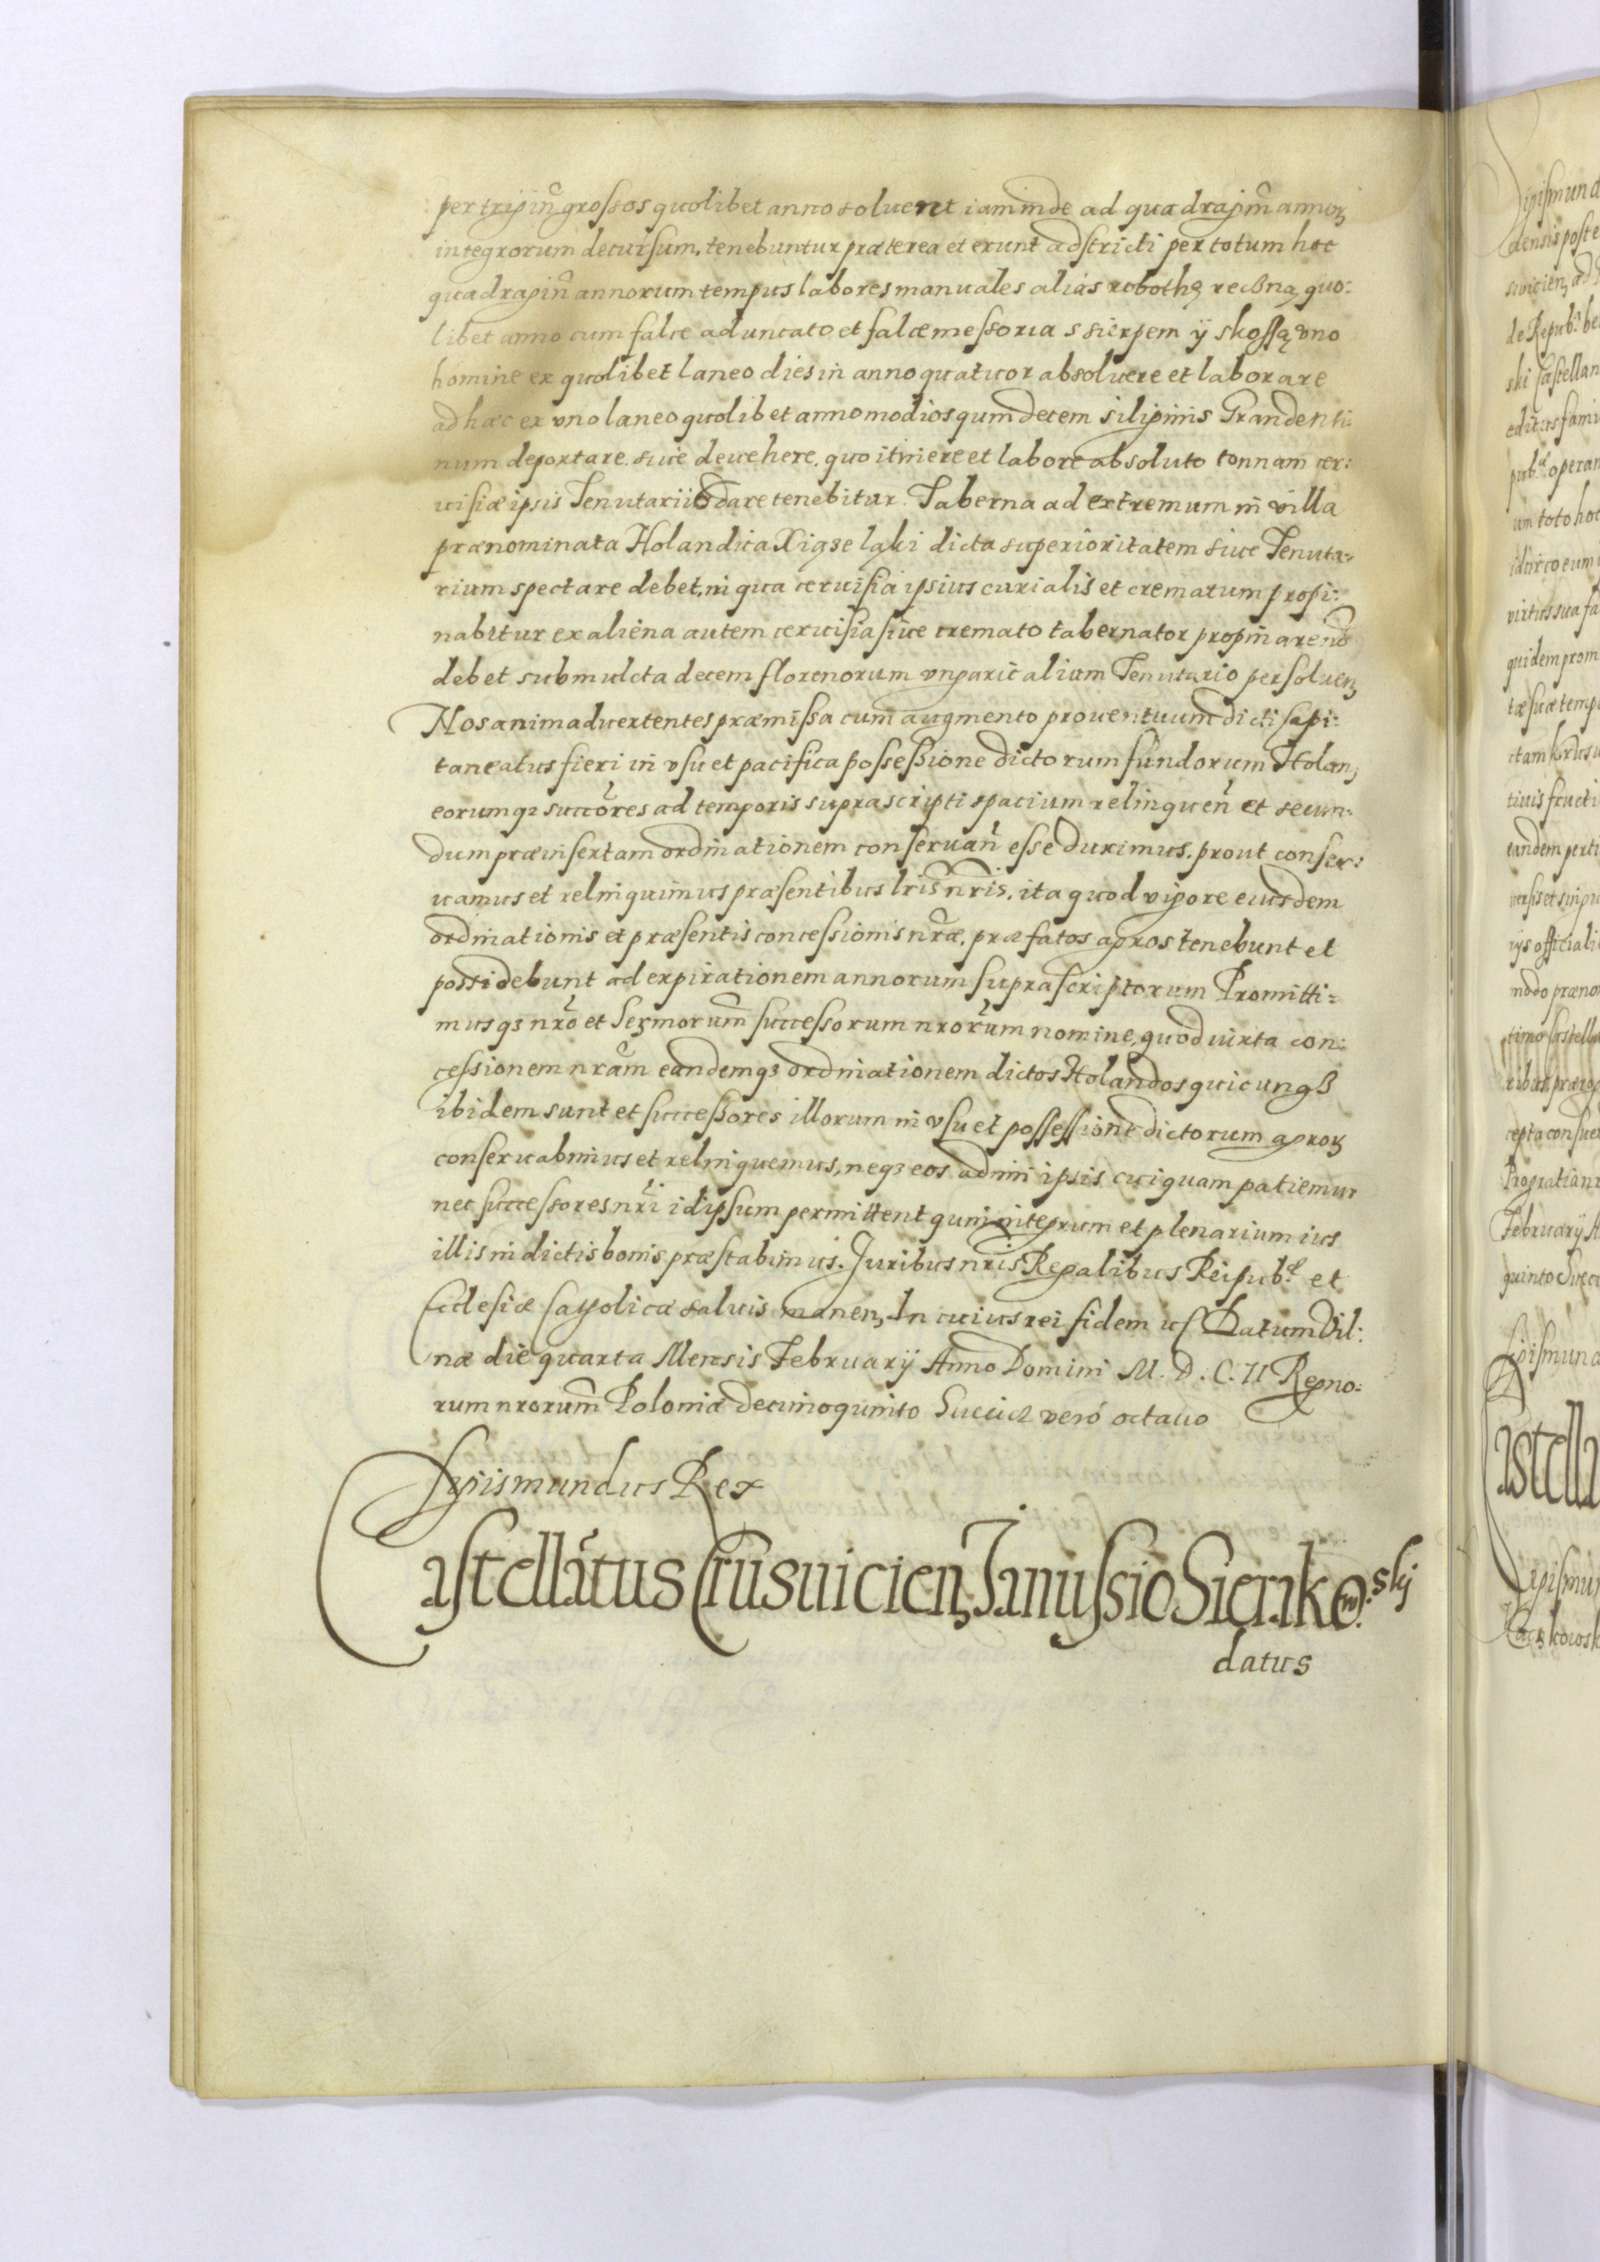 per trigin̄ grossos quolibet anno soluent iam inde ad quadragin̄ annoꝝ
integrorum decursum, tenebuntur præterea et erunt adstricti per totum hoc
quadragin̄ annorum tempus labores manuales alias robothę ręcżną quo:
libet anno cum falce aduncato et falce messoria s sierpem ÿ skossą vno
homine ex quolibet laneo dies in anno quatuor absoluere et laborare
ad hæc ex vno laneo quolibet anno modios quindecem siliginis Grandenti:
num deportare siue deuehere, quo itinere et labore absoluto tonnam cer:
uisiæ ipsis Tenutarius dare tenebitur. Taberna ad extremum in villa
prænominata Holandica Xiąże ląki dicta superioritatem siue Tenuta:
rium spectare debet, in qua ceruisia ipsius curialis et crematum propi:
nabitur ex aliena autem ceruisia siue cremato tabernator propinare nō
debet sub mulcta decem florenorum vngaricalium Tenutario persoluen
Nos animaduertentes præmissa cum augmento prouentuum dicti Capi:
taneatus fieri in vsu et pacifica possessione dictorum fundorum Holan
eorumqȝ succōres ad temporis suprascripti spacium relinquen̄ et secun:
dum præinsertam ordinationem conseruan̄ esse duximus. prout conser:
uamus et relinquimus præsentibus lris nris, ita quod vigore eiusdem
ordinationis et præsentis concessionis nræ, præfatos agros tenebunt et
possidebunt ad expirationem annorum suprascriptorum Promitti:
musqȝ nrō et Serꝫmorum successorum nrorum nomine, quod iuxta con:
cessionem nram eandemqȝ ordinationem dictos Holandos quicunqȝ
ibidem sunt et successores illorum in vsu et possessione dictorum agroꝝ
conseruabimus et relinquemus, neqȝ eos adimi ipsis cuiquam patiemur
nec successores nri id ipsum permittent quin integrum et plenarium ius
illis in dictis bonis præstabimus. Juribus nris Regalibus Reipub:cæ et
Ecclesiæ Catolicæ saluis manen, In cuius rei fidem &c Datum Vil:
næ die quarta Mensis Februarij Anno Domini M. D. C. II Regno:
rum nrorum Poloniæ decimoquinto Sueciæ verò octauo
Sigismundus Rex
Castellatus Crusuicien, Janussio Sierakow:skj
datus